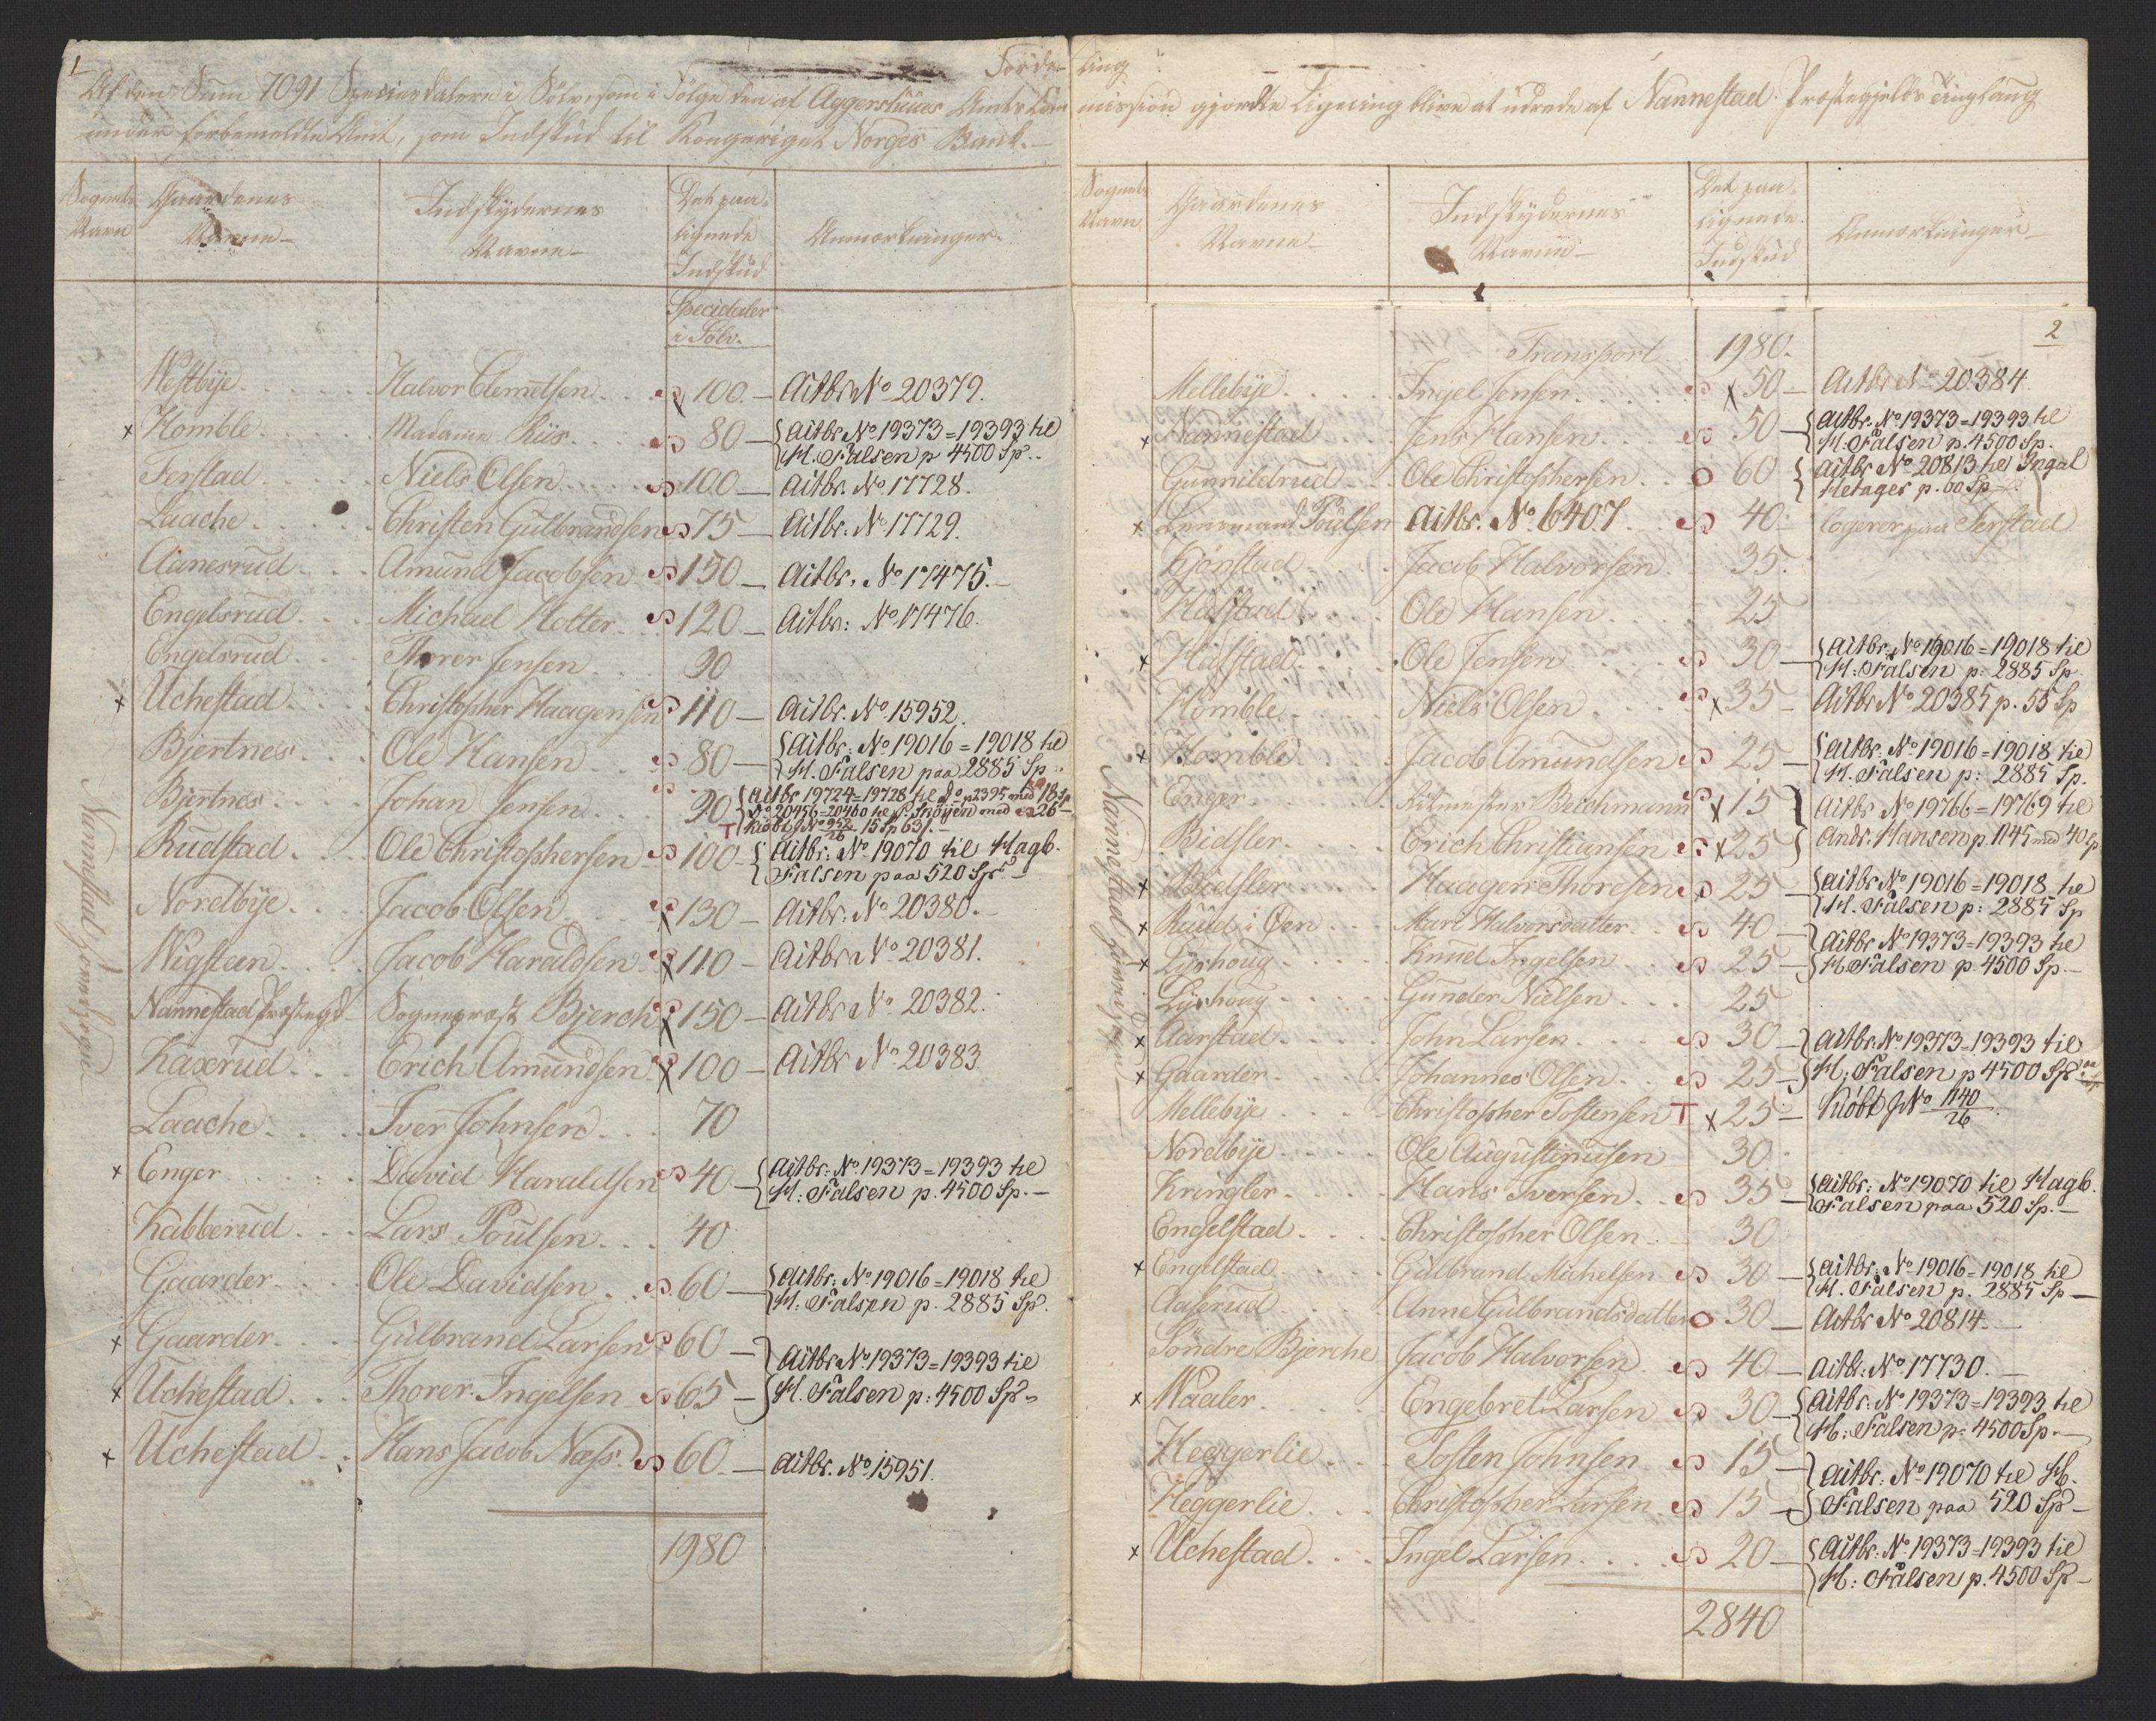 1
Fordeling
Af den Sum 7091 Speciesdalere i Sølv som i Følge den af Aggershuus Amts Commission gjordte Ligning bliver at udrede af Nannestad Præstegjelds Tinglaug
under forbemeldte Amt, som Indskud til Kongeriget Norges Bank.
Sognets Navn
Gaardenes Navne
Indskydernes Navne
Det paalignede Indskud
Anmærkninger
Speciedaler i Sølv.
Nannestad Sogn
Westbye Halvor Clemetsen 100 - Actbr No 20379.
x Homble Madame Riis 80 - {Actbr No 19373=19393 til
H. Falsen p 4500 Sp.
Ferstad Niels Olsen 100 - Actbr. No 17728.
Laache Christen Gulbrandsen 75 - Actbr: No 17729.
Aanesrud Amund Jacobsen 150 - Actbr. No 17475.
Engelsrud Michael Holter 120 - Actbr: No 17476.
Engelsrud Thorer Jensen 90
x Uchestad Christopher Haagensen 110 - Actbr. No 15952.
Bjertnes Ole Hansen 80 - {Actbr: No 19016=19018 til
H. Falsen paa 2885 Sp.
Bjertnes Johan Jensen 90 {Actbr 19724=19728 til p 2395 med 18 Sp
20456=20460 til med 26
T Kiøbt No 952/26 15 Sp 63
Rudstad Ole Christophersen 100 - {Actbr: No 19070 til Hagb.
Falsen paa 520 Sp.
Nordbye Jacob Olsen x 130 - Actbr: No 20380.
Nigsteen Jacob Haraldsen x 110 - Actbr No 20381.
Nannestad Præstegd Sognepræst Bjerch x 150 - Actbr No. 20382.
Kaxrud Erich Amundsen x 100 - Actbr No 20383
Laache Iver Johnsen 70
x Enger David Haraldsen 40 - {Actbr: No 19373=19393 til
H: Falsen p. 4500 Sp.
Kabberud Lars Poulsen 40
Gaarder Ole Davidsen 60 - {Actbr: No 19016=19018 til
H. Falsen p. 2885 Sp.
x Gaarder Gulbrand Larsen 60 -
x Uchestad Thorer Ingelsen 65 - } Actbr No 19373=19393 til
H. Falsen p: 4500 Sp.
x Uchestad Hans Jacob Næss 60 - Actbr. No 15951.
1980
Sognets Navn
Gaardenes Navne
Indskydernes Navne
Det paalignede Indskud
Anmærkninger
2
Nannestad Sogn
Transport 1980.
Mellebye Ingel Jensen x 50 - Actbr No 20384
x Nannestad Jens Hansen 50 - {Actbr. No 19373=19393 til
H. Falsen p. 4500 Sp.
Gunnildrud Ole Christophersen 60 {Actbr No 20813 til Ingal
Hetager p. 60 Sp
x Lensmand Poulsen Actbr. No 6407. 40. logerer paa Ferstad
Kjønstad Jacob Halvorsen 35.
Holstad Ole Hansen 25
x Holstad Ole Jensen 30 - {Actbr. No 19016=19018 til
H. Falsen p: 2885 Sp
Homble Niels Olsen x 35 - Actbr No 20385 p. 55 Sp
x Homble Jacob Amundsen 25 - {Actbr: No 19016=19018 til
H. Falsen p: 2885 Sp.
Enger Ritmester Bechmann x 15 } Actbr No 19766=19769 til
Bidsler Erich Christiansen x 25 } Andr. Hansen p. 1145 med 40 Sp
x Bidsler Haagen Thoresen 25 - {Actbr No 19016=19018 til
H. Falsen p: 2885 Sp
x Ruud i Øen Mari Halvorsdatter 40 - } Actbr No 19373=19393 til
x Lyshoug Knud Ingelsen 25 - } H. Falsen p. 4500 Sp.
Lyshoug Gunder Nielsen 25
x Aarstad John Larsen 30 } Actbr. No 19373=19393 til
x Gaarder Johannes Olsen 25 - } H. Falsen p 4500 Sp.
Mellebye Christopher Tostensen T x 25 - Kiøbt No 1140/26
Nordbye Ole Augustinusen 30
Kringler Hans Iversen 35 - {Actbr: No 19070 til Hagb.
Falsen paa 520 Sp.
Engelstad Christopher Olsen 30
x Engelstad Gulbrand Michelsen 30 - {Actbr. No 19016=19018 til
H. Falsen p. 2885 Sp
Aaserud Anne Gulbrandsdatter 30 - Actbr No 20814
Søndre Bjerche Jacob Halvorsen 40 - Actbr: No 17730.
x Maaler Engebret Larsen 30 - {Actbr: No 19373=19393 til
H: Falsen p: 4500 Sp.
Heggerlie Tosten Johnsen 15 - } Actbr: No 19070 til H.
Heggerlie Christopher Larsen 15 - } Falsen paa 520 Sp
x Uchestad Ingel Larsen 20 - {Actbr: No 19373=19393 til
H: Falsen p. 4500 Sp
2840